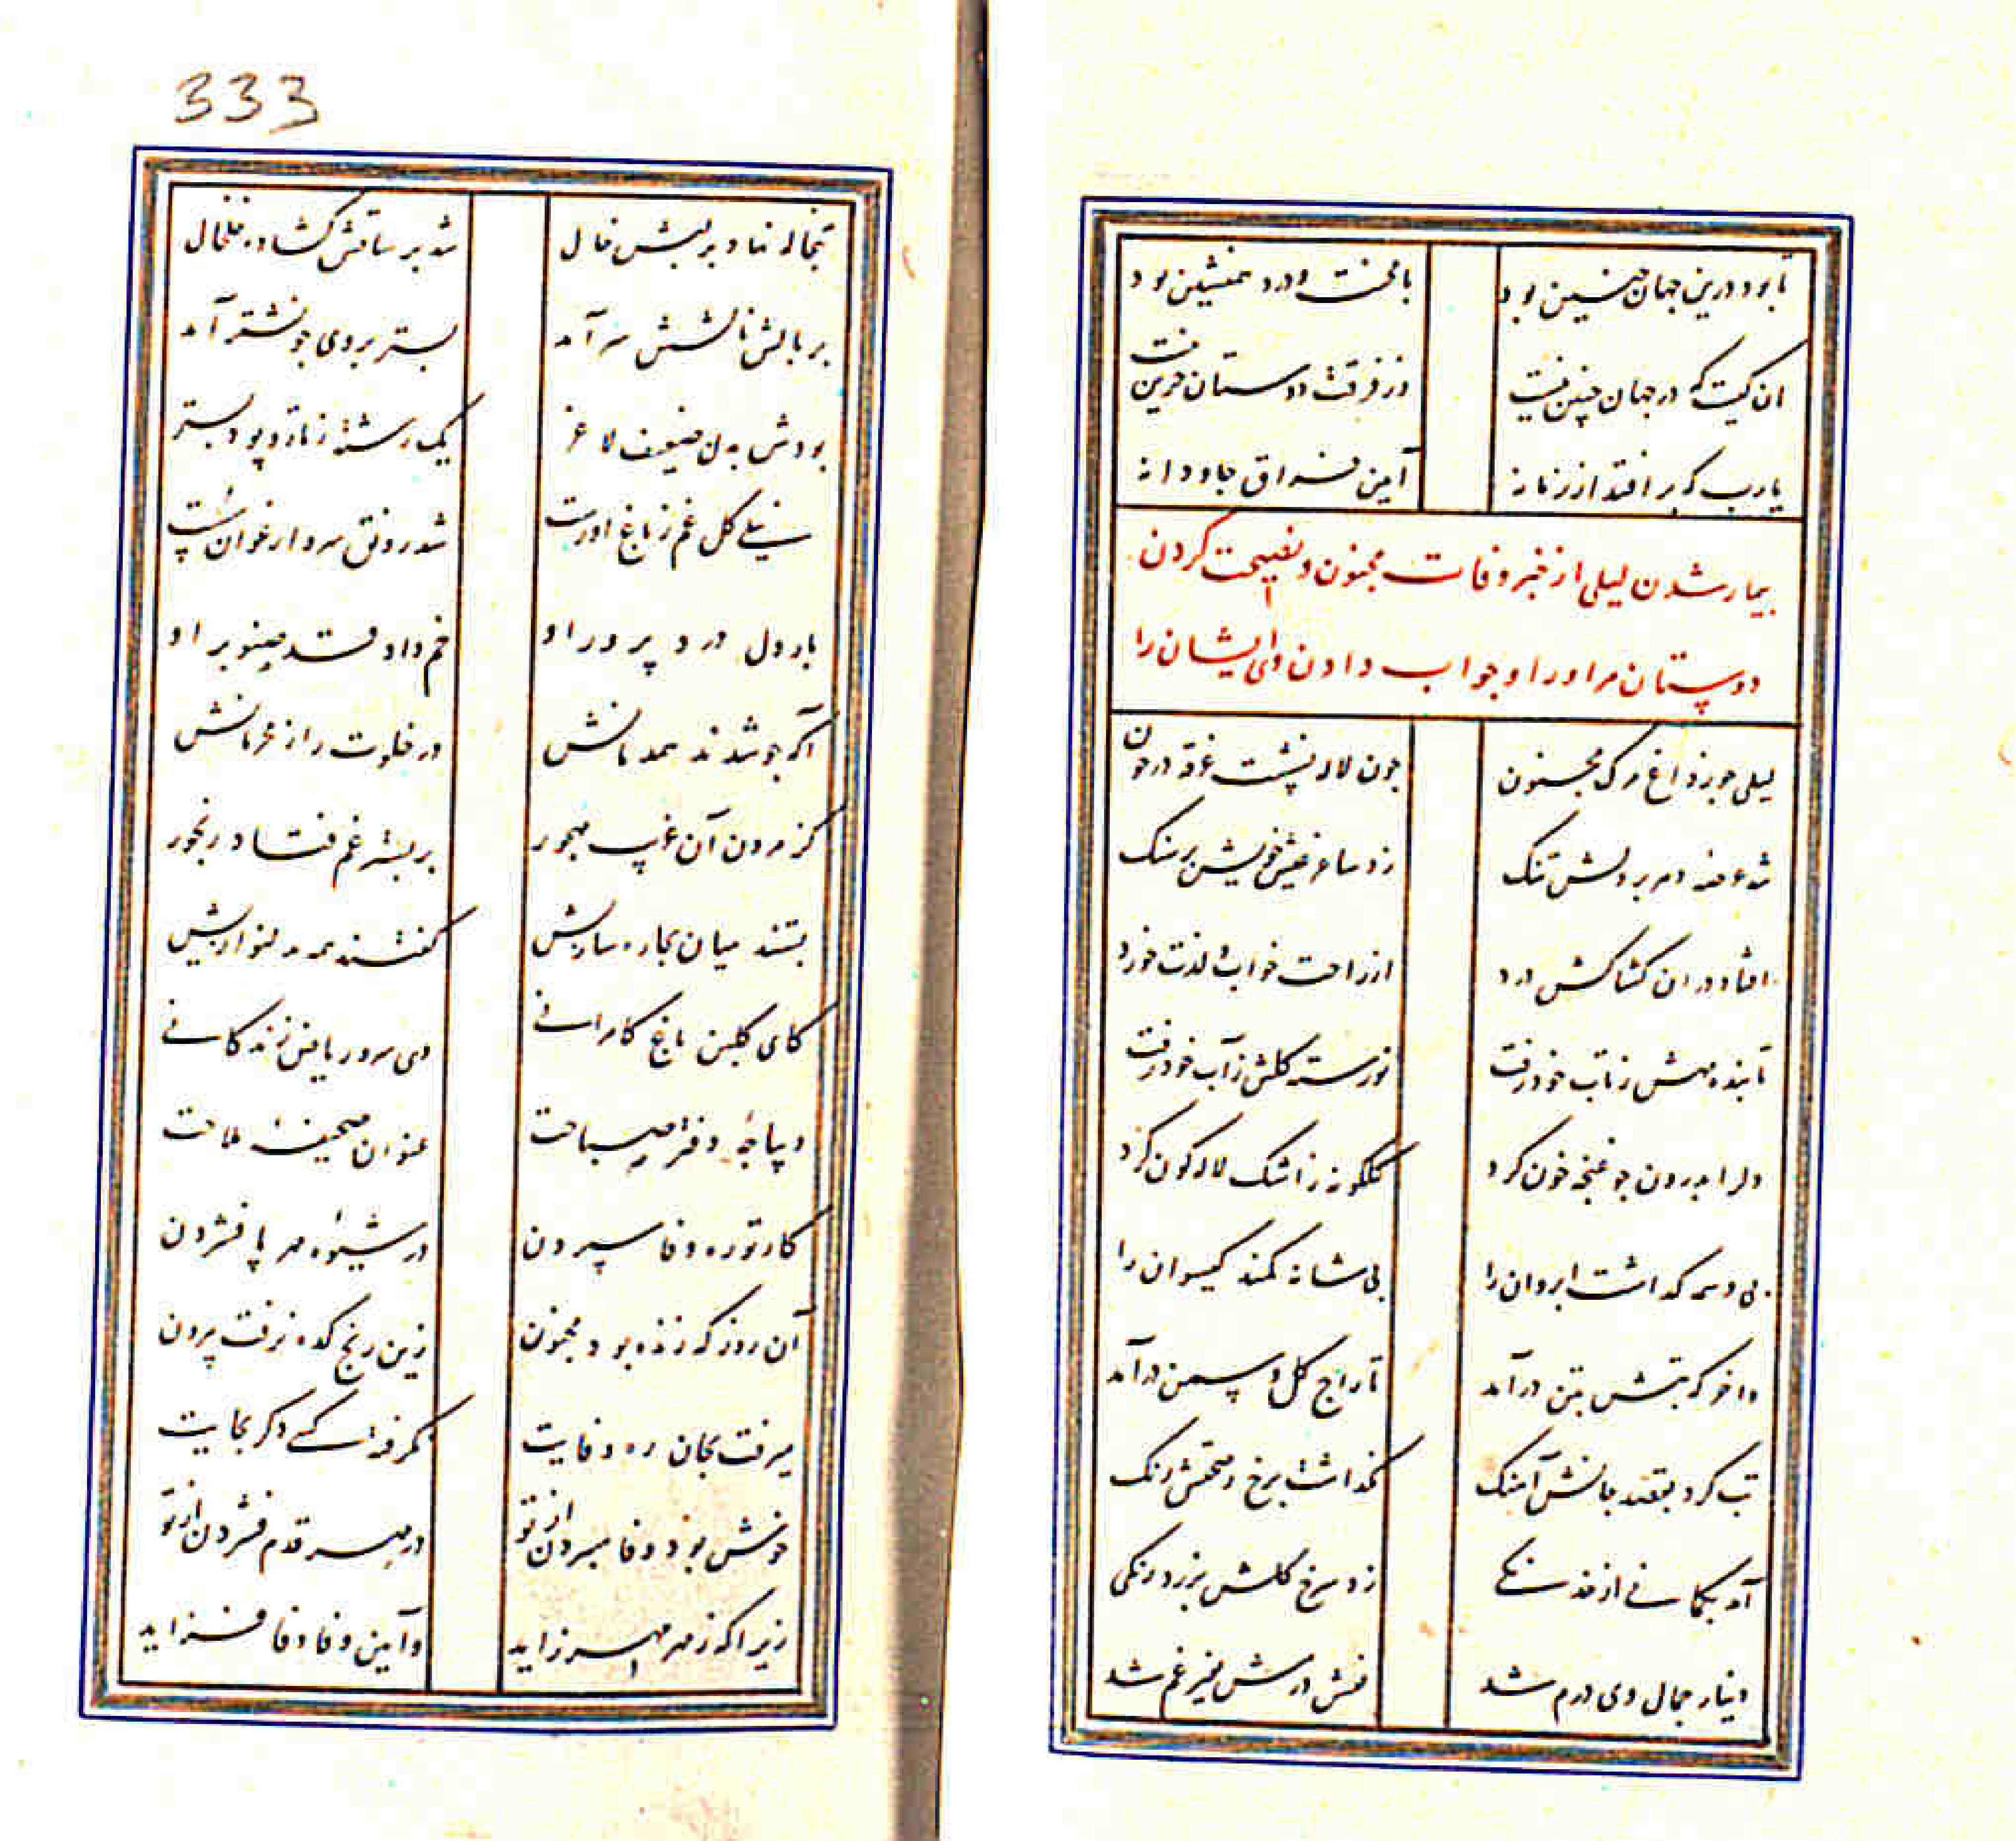 تا بود درین جهان چنین بود با محنت و درد همنشین بود
ان کیست که در جهان چنین نیست وز فرقت دوستان حزین نیست
یارب که بر افتد از زمانه آیین فراق جاودانه
بیمار شدن لیلی از خبر وفات مجنون و نصیحت کردن
دوستان مر او را و جواب دادن وی ایشان را
لیلی چو ز داغ مرک مجنون چون لاله نشست غرقه در خون
شد عرصه دهر بر دلش تنک زد ساغر عیش خویش بر سنک
افتاد در ان کشاکش درد از راحت خواب و لذت خورد
تابنده مهش ز تاب خود رفت نورسته کلش ز آب خود رفت
دلرا بدرون چو غنچه خون کرد کلکونه ز اشک لاله کون کرد
بی وسمه کداشت ابروان را بی شانه کمند کیسوان را
واخر که تبش بتن درآمد تاراج کل و سمن درآمد
تب کرد بقصد جانش آهنک نکداشت برخ ز صحتش رنک
آمد بکمانی از خدنکی زد سرخ کلش بزرد رنکی
دینار جمال وی درم شد
333
تبخاله نهاد بر لبش خال شد بر ساقش کشاده خلخال
بر بالش نالشش سر آمد بستر بروی چو نشتر آمد
بودش بدن ضعیف لاغر یک رشته ز تار و پود بستر
نیلی کل غم ز باغ او رست شد رونق سرو ارغوان پست
بار دل درد پرور او خم داد قد صنوبر او
آکه چو شدند همدمانش در خلوت راز محرمانش
کز مردن آن غریب مهجور بر بستر غم فتاد رنجور
بستند میان بچاره سازیش کفتند همه بدلنوازیش
کای کلبن باغ کامرانی وی سرو ریاض زندکانی
دیباچه دفتر صباحت عنوان صحیفه ملاحت
کار تو ره وفا سپردن در شیوه مهر پا فشردن
آن روز که زنده بود مجنون زین رنج کده نرفت بیرون
میرفت بجان ره وفایت نکرفت کسی دکر بجایت
خوش بود وفا سپردن از تو در مهر قدم فشردن از تو
زیرا که ز مهر مهر زاید و آیین وفا وفا فزاید